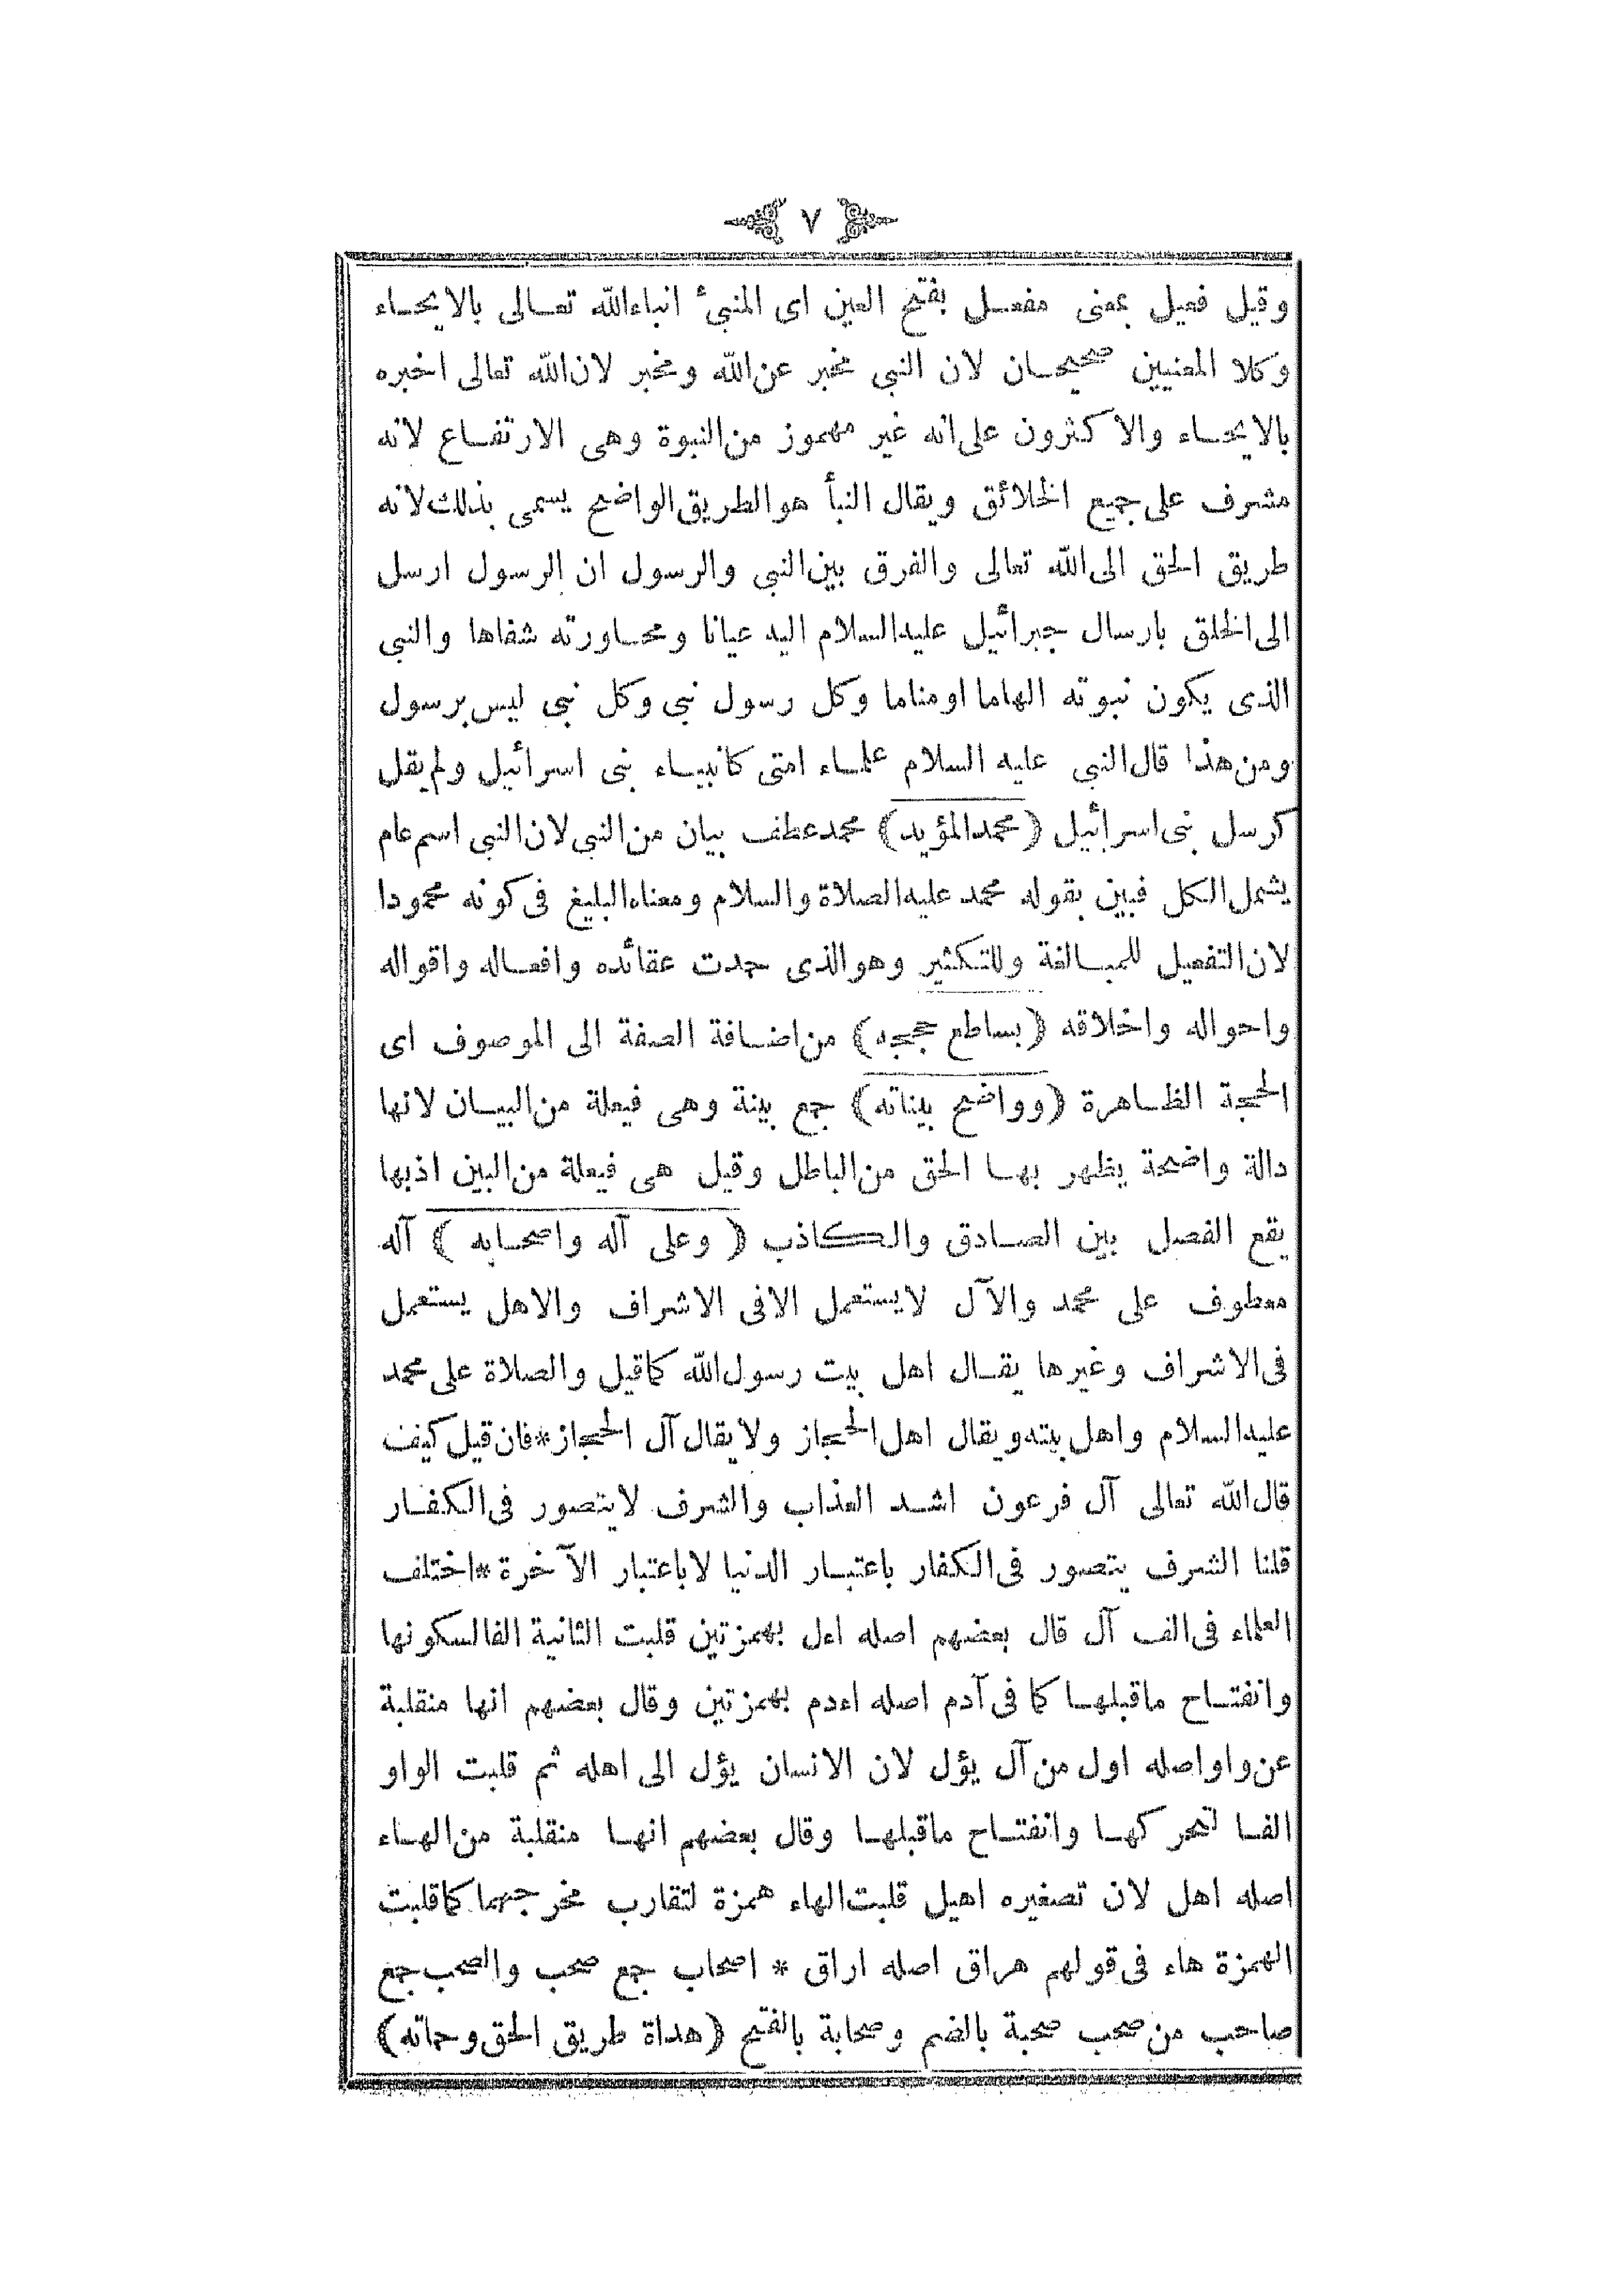 ٧
وقيل فعيل بمعنى مفعــل بفتح العين اى المنبئ انباءالله تعــالى بالايحــاء
وكلا المعنيين صحيحــان لان النبى مخبر عن الله ومخبر لان الله تعالى اخبره
بالايحــاء والاكثرون على انه غير مهموز من النبوة وهى الارتفــاع لانه
مشرف على جميع الخلائق ويقال النبأ هو الطريق الواضح يسمى بذلك لانه
طريق الحق الى الله تعالى والفرق بين النبى والرسول ان الرسول ارسل
الى الخلق بارسال جبرائيل عليه السلام اليه عيانا ومحــاورته شفاها والنبى
الذى يكون نبوته الهاما او مناما وكل رسول نبى وكل نبى ليس برسول
ومن هذا قال النبى عليه السلام علمــاء امتى كانبيــاء بنى اسرائيل ولم يقل
كرسل بنى اسرائيل (محمد المؤيد) محمد عطف بيان من النبى لان النبى اسم عام
يشمل الكل فبين بقوله محمد عليه الصلاة والسلام ومعناه البليغ فى كونه محمودا
لان التفعيل للمبــالغة وللتكثير وهو الذى حمدت عقائده وافعــاله واقواله
واحواله واخلاقه (بساطع حججه) من اضــافة الصفة الى الموصوف اى
الحجة الظــاهرة (وواضح بيناته) جمع بينة وهى فيعلة من البيــان لانها
دالة واضحة يظهر بهــا الحق من الباطل وقيل هى فيعلة من البين اذبها
يقع الفصل بين الصــادق والكاذب (وعلى آله واصحــابه) آله
معطوف على محمد والآل لايستعمل الا فى الاشراف والاهل يستعمل
فى الاشراف وغيرها يقــال اهل بيت رسول الله كما قيل والصلاة على محمد
عليه السلام واهل بيته ويقال اهل الحجاز ولا يقال آل الحجاز*فان قيل كيف
قال الله تعالى آل فرعون اشــد العذاب والشرف لايتصور فى الكفــار
قلنا الشرف يتصور فى الكفار باعتبــار الدنيا لا باعتبار الآخرة*اختلف
العلماء فى الف آل قال بعضهم اصله اءل بهمزتين قلبت الثانية الفا لسكونها
وانفتــاح ماقبلهــا كما فى آدم اصله اءدم بهمزتين وقال بعضهم انها منقلبة
عن واو اصله اول من آل يؤل لان الانسان يؤل الى اهله ثم قلبت الواو
الفــا لتحركهــا وانفتــاح ماقبلهــا وقال بعضهم انهــا منقلبة من الهــاء
اصله اهل لان تصغيره اهيل قلبت الهاء همزة لتقارب مخرجهما كما قلبت
الهمزة هاء فى قولهم هراق اصله اراق * اصحاب جمع صحب والصحب جمع
صاحب من صحب صحبة بالضم وصحابة بالفتح (هداة طريق الحق وحماته)